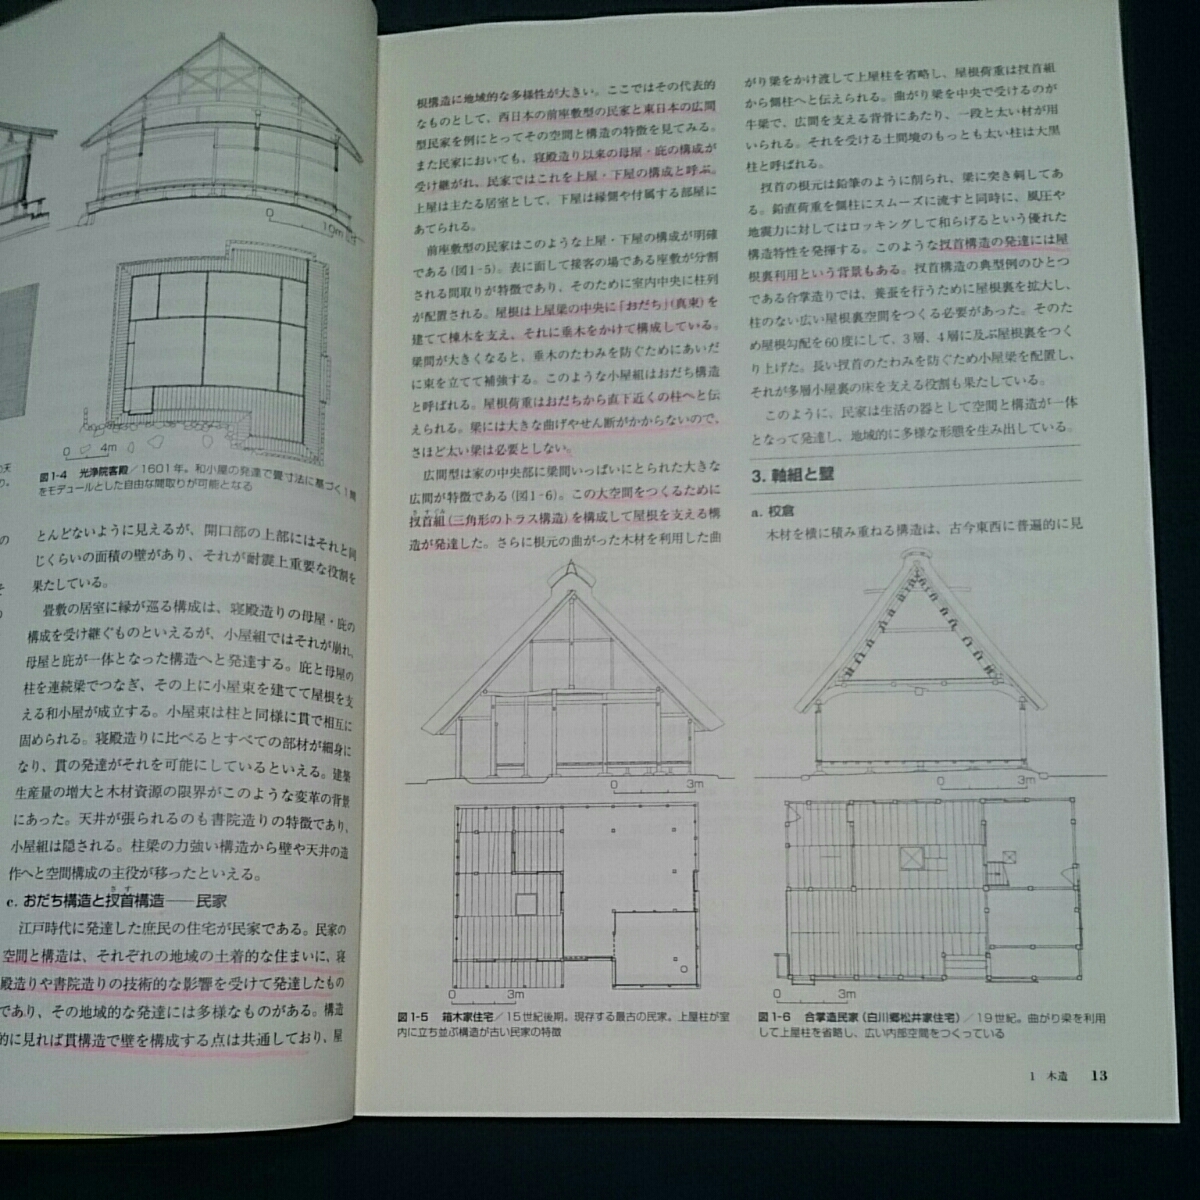 0
10m
0
4m
図1-4 光浄院客殿／1601年。和小屋の発達で畳寸法に基づく1間
をモデュールとした自由な間取りが可能となる
とんどないように見えるが、開口部の上部にはそれと同
じくらいの面積の壁があり、それが耐震上重要な役割を
果たしている。
畳敷の居室に縁が巡る構成は、寝殿造りの母屋・庇の
構成を受け継ぐものといえるが、小屋組ではそれが崩れ、
母屋と庇が一体となった構造へと発達する。庇と母屋の
柱を連続梁でつなぎ、その上に小屋束を建てて屋根を支
える和小屋が成立する。小屋束は柱と同様に貫で相互に
固められる。寝殿造りに比べるとすべての部材が細身に
なり、貫の発達がそれを可能にしているといえる。建築
生産量の増大と木材資源の限界がこのような変革の背景
にあった。天井が張られるのも書院造りの特徴であり、
小屋組は隠される。柱梁の力強い構造から壁や天井の造
作へと空間構成の主役が移ったといえる。
c. おだち構造と扠首構造——民家
さす
江戸時代に発達した庶民の住宅が民家である。民家の
空間と構造は、それぞれの地域の土着的な住まいに、寝
殿造りや書院造りの技術的な影響を受けて発達したもの
であり、その地域的な発達には多様なものがある。構造
的に見れば貫構造で壁を構成する点は共通しており、屋
根構造に地域的な多様性が大きい。ここではその代表的
なものとして、西日本の前座敷型の民家と東日本の広間
型民家を例にとってその空間と構造の特徴を見てみる。
また民家においても、寝殿造り以来の母屋・庇の構成が
受け継がれ、民家ではこれを上屋・下屋の構成と呼ぶ。
上屋は主たる居室として、下屋は縁側や付属する部屋に
あてられる。
前座敷型の民家はこのような上屋・下屋の構成が明確
である（図1-5）。表に面して接客の場である座敷が分割
される間取りが特徴であり、そのために室内中央に柱列
が配置される。屋根は上屋梁の中央に「おだち」（真束）を
建てて棟木を支え、それに垂木をかけて構成している。
梁間が大きくなると、垂木のたわみを防ぐためにあいだ
に束を立てて補強する。このような小屋組はおだち構造
と呼ばれる。屋根荷重はおだちから直下近くの柱へと伝
えられる。梁には大きな曲げやせん断がかからないので、
さほど太い梁は必要としない。
広間型は家の中央部に梁間いっぱいにとられた大きな
広間が特徴である（図1-6）。この大空間をつくるために
扠首組（三角形のトラス構造）を構成して屋根を支える構
造が発達した。さらに根元の曲がった木材を利用した曲
がり梁をかけ渡して上屋柱を省略し、屋根荷重は扠首組
から側柱へと伝えられる。曲がり梁を中央で受けるのが
牛梁で、広間を支える背骨にあたり、一段と太い材が用
いられる。それを受ける土間境のもっとも太い柱は大黒
柱と呼ばれる。
扠首の根元は鉛筆のように削られ、梁に突き刺してあ
る。鉛直荷重を側柱にスムーズに流すと同時に、風圧や
地震力に対してはロッキングして和らげるという優れた
構造特性を発揮する。このような扠首構造の発達には屋
根裏利用という背景もある。扠首構造の典型例のひとつ
である合掌造りでは、養蚕を行うために屋根裏を拡大し、
柱のない広い屋根裏空間をつくる必要があった。そのた
め屋根勾配を60度にして、3層、4層に及ぶ屋根裏をつく
り上げた。長い扠首のたわみを防ぐため小屋梁を配置し、
それが多層小屋裏の床を支える役割も果たしている。
このように、民家は生活の器として空間と構造が一体
となって発達し、地域的に多様な形態を生み出している。
3. 軸組と壁
a. 校倉
木材を横に積み重ねる構造は、古今東西に普遍的に見
0
3m
0
3m
0
3m
0
3m
図1-5 箱木家住宅／15世紀後期。現存する最古の民家。上屋柱が室
内に立ち並ぶ構造が古い民家の特徴
図1-6 合掌造民家（白川郷松井家住宅）／19世紀。曲がり梁を利用
して上屋柱を省略し、広い内部空間をつくっている
1 木造 13